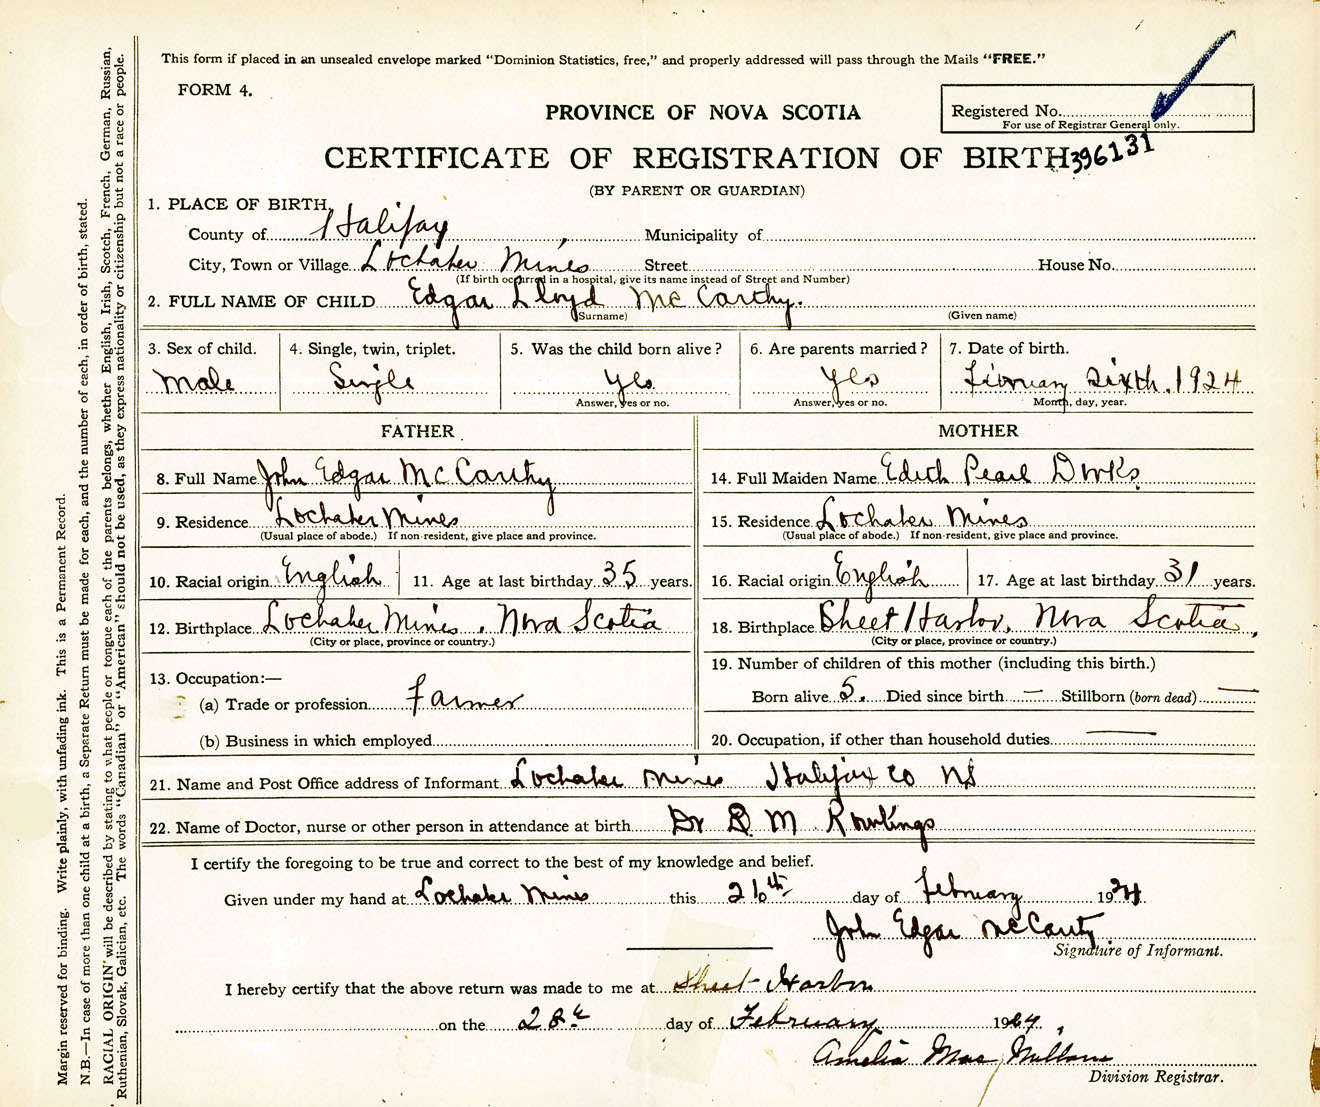 This form if placed in an unsealed envelope marked "Dominion Statistics, free," and properly addressed will pass through the Mails "FREE."
FORM 4.
PROVINCE OF NOVA SCOTIA
Registered No.
For use of Registrar General only.
396131
CERTIFICATE OF REGISTRATION OF BIRTH
(BY PARENT OR GUARDIAN)
1. PLACE OF BIRTH,
County of Halifax Municipality of
City, Town or Village Lochaber Mines Street House No.
(If birth occurred in a hospital, give its name instead of Street and Number)
2. FULL NAME OF CHILD Edgar Lloyd McCarthy.
(Surname) (Given name)
3. Sex of child. 4. Single, twin, triplet. 5. Was the child born alive? 6. Are parents married? 7. Date of birth.
Male Single Yes. Yes February Sixth. 1924
Answer, yes or no. Answer, yes or no. Month, day, year.
FATHER MOTHER
8. Full Name John Edgar McCarthy 14. Full Maiden Name Edith Pearl
9. Residence Lochaber Mines 15. Residence Lochaber Mines
(Usual place of abode.) If non-resident, give place and province. (Usual place of abode.) If non-resident, give place and province.
10. Racial origin English 11. Age at last birthday 35 years. 16. Racial origin English 17. Age at last birthday 31 years.
12. Birthplace Lochaber Mines, Nova Scotia 18. Birthplace Sheet Harbor, Nova Scotia,
(City or place, province or country.) (City or place, province or country.)
13. Occupation:— 19. Number of children of this mother (including this birth.)
(a) Trade or profession farmer Born alive 5. Died since birth — Stillborn (born dead) —
(b) Business in which employed 20. Occupation, if other than household duties —
21. Name and Post Office address of Informant Lochaber Mines Halifax Co NS
22. Name of Doctor, nurse or other person in attendance at birth Dr D M Rowlings
I certify the foregoing to be true and correct to the best of my knowledge and belief.
Given under my hand at Lochaber Mines this 26th day of February 1924
John Edgar McCarthy
Signature of Informant.
I hereby certify that the above return was made to me at Sheet Harbor
on the 28th day of February 1924,
Amelia Mac
Division Registrar.
Margin reserved for binding. Write plainly, with unfading ink. This is a Permanent Record.
N.B.—In case of more than one child at a birth, a Separate Return must be made for each, and the number of each, in order of birth, stated.
RACIAL ORIGIN will be described by stating to what people or tongue each of the parents belongs, whether English, Irish, Scotch, French, German, Russian,
Ruthenian, Slovak, Galician, etc. The words "Canadian" or "American" should not be used, as they express nationality or citizenship but not a race or people.